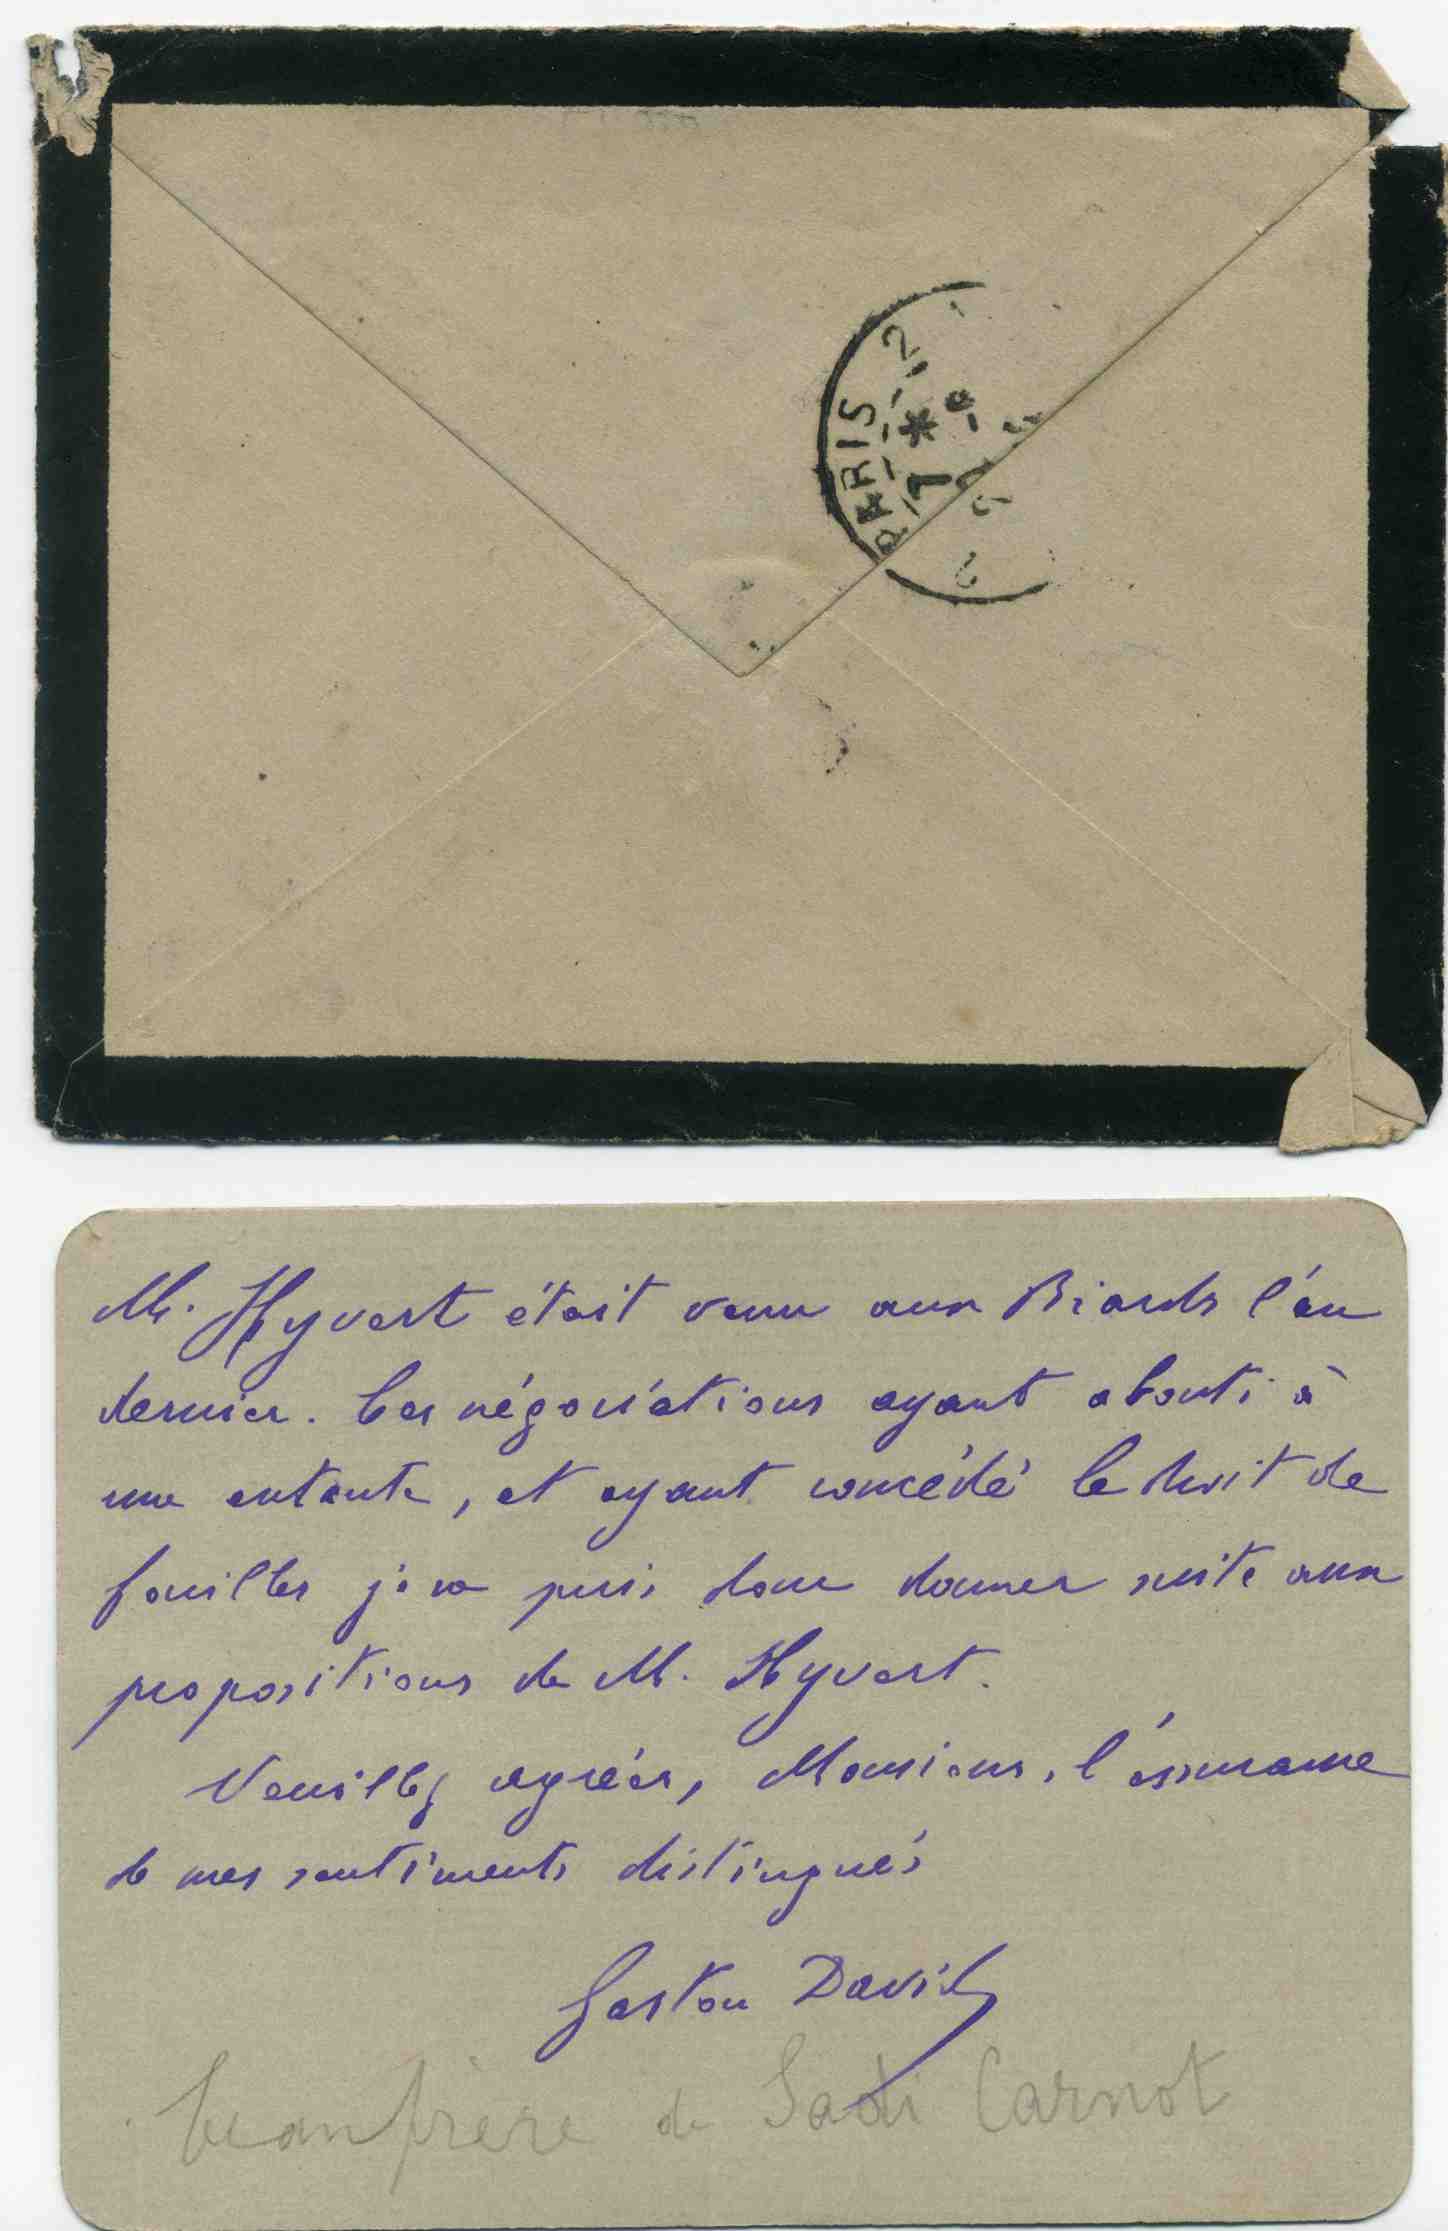 PARIS
M. Hyvert était venu aux Biards l'an
dernier. Ces négociations ayant abouti à
une entente, et ayant concédé le droit de
fouilles je ne puis donc donner suite aux
propositions de M. Hyvert.
Veuillez agréer, Monsieur, l'assurance
de mes sentiments distingués
Gaston David
beaufrère de Sadi Carnot